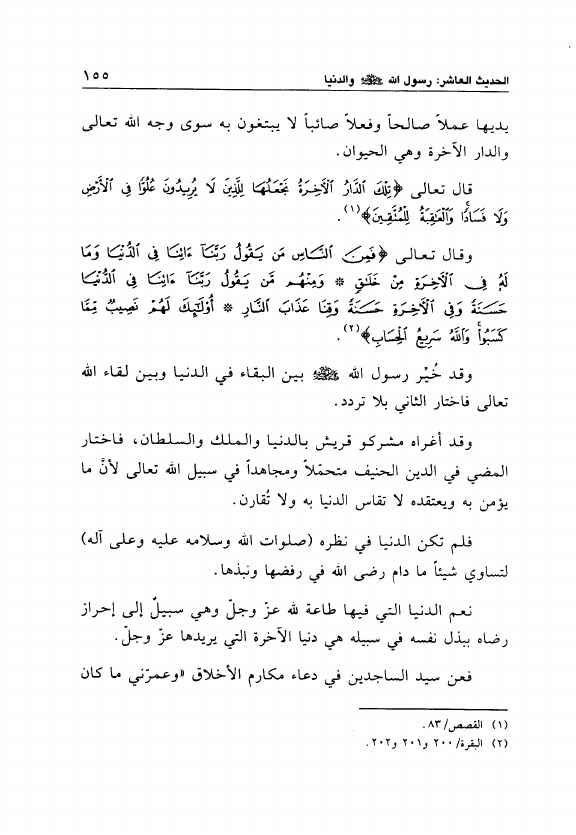 الحديث العاشر: رسول الله ﷺ والدنيا ١٥٥
يديها عملاً صالحاً وفعلاً صائباً لا يبتغون به سوى وجه الله تعالى
والدار الآخرة وهي الحيوان.
قال تعالى ﴿تِلْكَ ٱلدَّارُ ٱلْآخِرَةُ نَجْعَلُهَا لِلَّذِينَ لَا يُرِيدُونَ عُلُوًّا فِي ٱلْأَرْضِ
وَلَا فَسَادًا وَٱلْعَاقِبَةُ لِلْمُتَّقِينَ﴾(١).
وقال تعالى ﴿فَمِنَ ٱلنَّاسِ مَن يَقُولُ رَبَّنَآ ءَاتِنَا فِي ٱلدُّنْيَا وَمَا
لَهُ فِي ٱلْآخِرَةِ مِنْ خَلَاقٍ * وَمِنْهُم مَّن يَقُولُ رَبَّنَآ ءَاتِنَا فِي ٱلدُّنْيَا
حَسَنَةً وَفِي ٱلْآخِرَةِ حَسَنَةً وَقِنَا عَذَابَ ٱلنَّارِ * أُوْلَٰٓئِكَ لَهُمْ نَصِيبٌ مِّمَّا
كَسَبُواْ وَٱللَّهُ سَرِيعُ ٱلْحِسَابِ﴾(٢).
وقد خُيّر رسول الله ﷺ بين البقاء في الدنيا وبين لقاء الله
تعالى فاختار الثاني بلا تردد.
وقد أغراه مشركو قريش بالدنيا والملك والسلطان، فاختار
المضي في الدين الحنيف متحمّلاً ومجاهداً في سبيل الله تعالى لأنَّ ما
يؤمن به ويعتقده لا تقاس الدنيا به ولا تُقارن.
فلم تكن الدنيا في نظره (صلوات الله وسلامه عليه وعلى آله)
لتساوي شيئاً ما دام رضى الله في رفضها ونبذها.
نعم الدنيا التي فيها طاعة لله عزّ وجلّ وهي سبيلٌ إلى إحراز
رضاه ببذل نفسه في سبيله هي دنيا الآخرة التي يريدها عزّ وجلّ.
فعن سيد الساجدين في دعاء مكارم الأخلاق «وعمرّني ما كان
(١) القصص/٨٣.
(٢) البقرة/٢٠٠ و٢٠١ و٢٠٢.